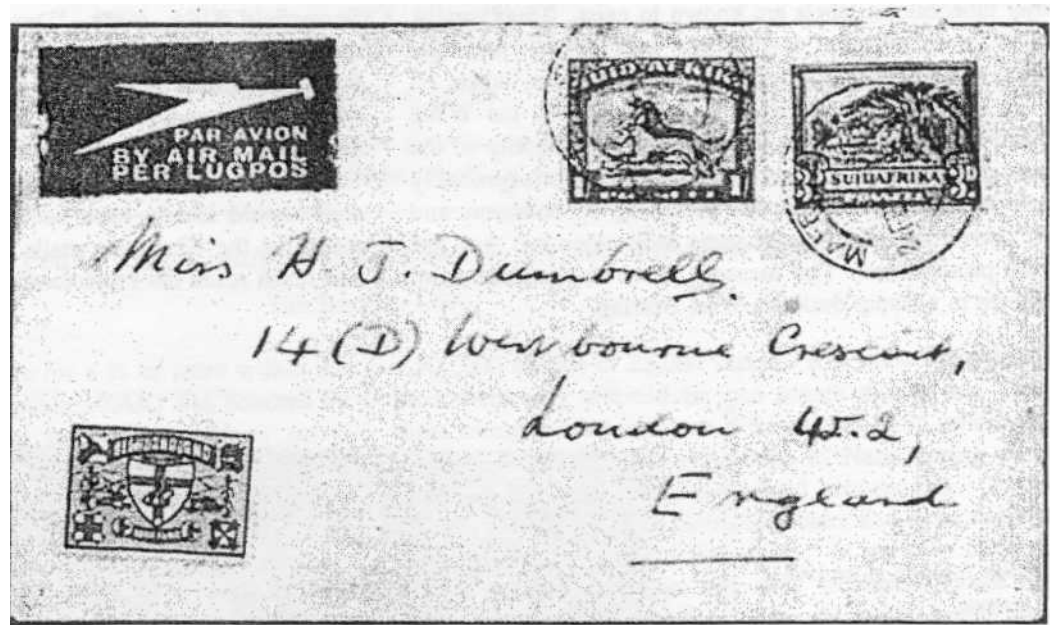 PAR AVION
BY AIR MAIL
PER LUGPOS
SUID-AFRIKA
1/ 1/
3D SUIDAFRIKA 3D
Miss H J. Dumbrell,
14 (D) Westbourne Crescent,
London W.2,
England